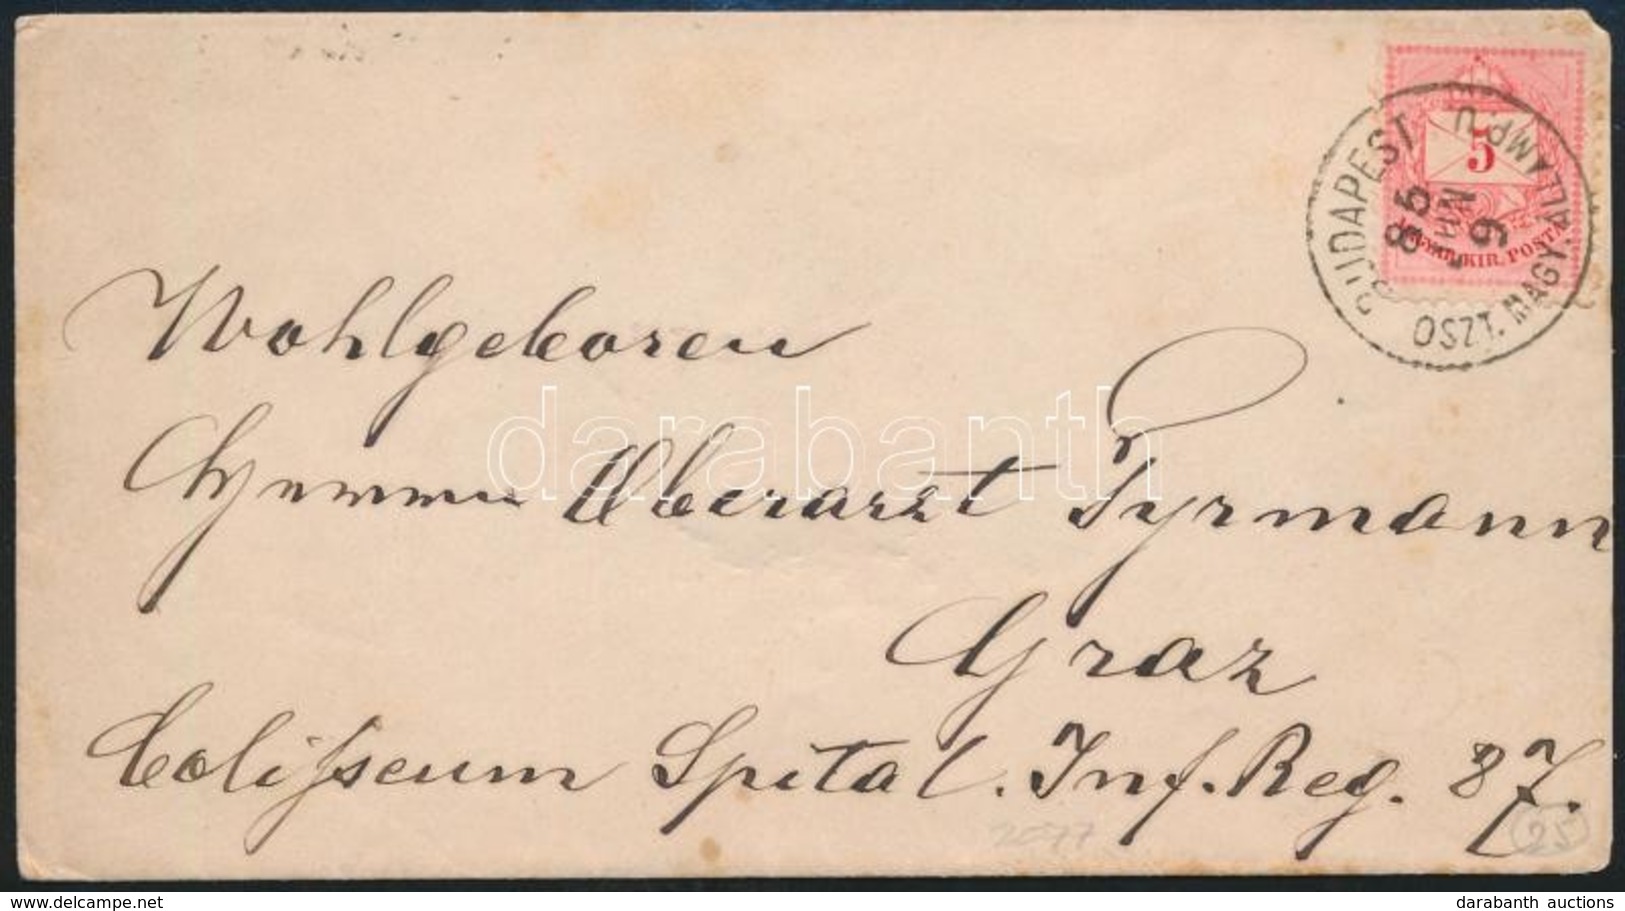 5
MAGYAR KIR. POSTA
BUDAPEST
OSZT. MAGY. ÁLLAMP. U
85
JUN
9
Wohlgeboren
Herrn Oberarzt Pyrmann
Graz
Colisseum Spital. Inf. Reg. 87.
2077
25
darabanth
delcampe.net
darabanth auctions